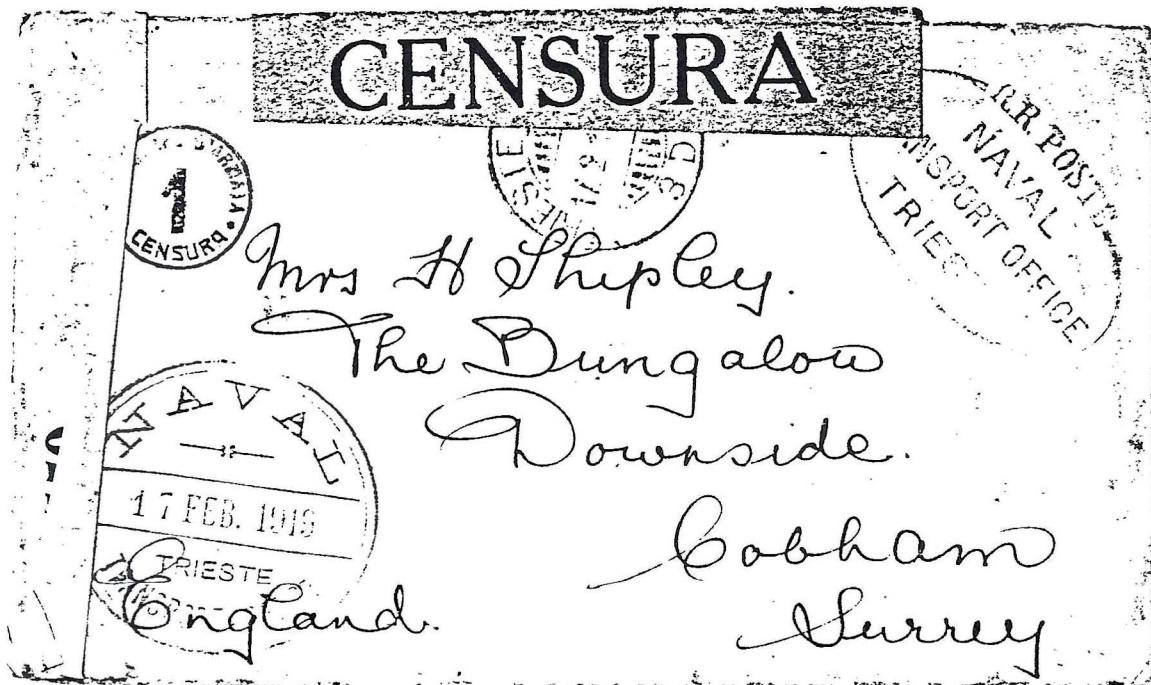 CENSURA
R.R. POSTE
NAVAL
TRANSPORT OFFICE
TRIESTE
1
CENSURA
Mrs H Shipley.
The Bungalow
Downside.
Cobham
Surrey
England.
NAVAL
17 FEB. 1919
TRIESTE